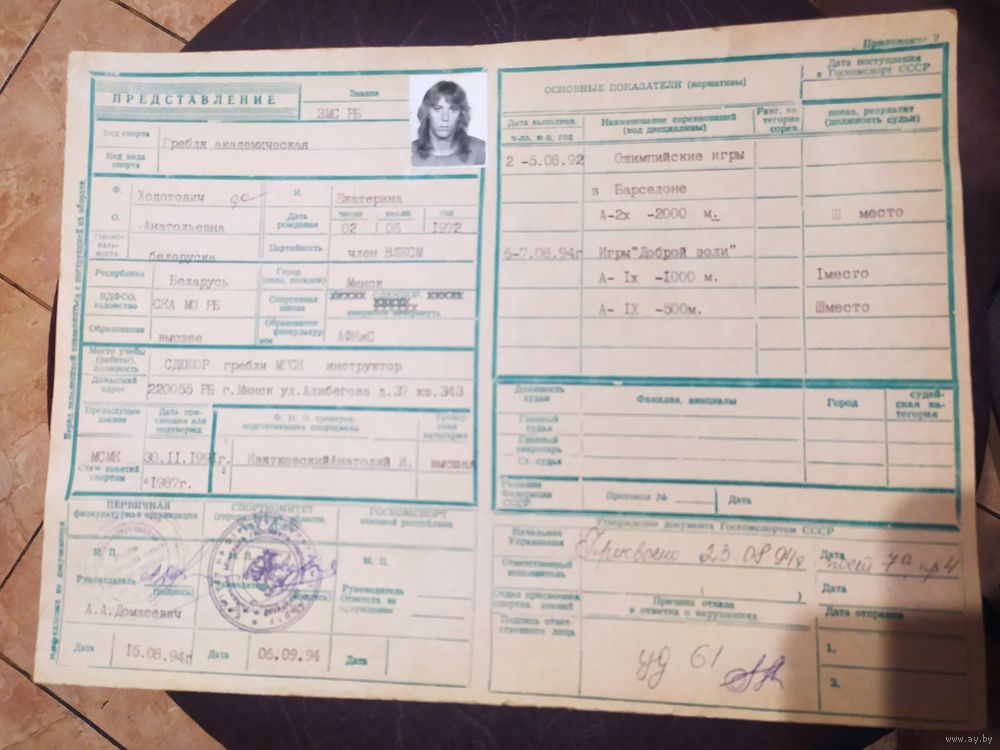 Приложение 2
ПРЕДСТАВЛЕНИЕ
Звание
ЗМС РБ
Вид спорта
Гребля академическая
Код вида спорта
Ф.
Ходотович
И.
Екатерина
О.
Анатольевна
Дата рождения
число месяц год
02 05 1972
Националь-
ность
белоруска
Партийность
член ВЛКСМ
Республика
Беларусь
Город
(село, поселок)
Минск
ВДФСО,
ведомство
СКА МО РБ
Спортивная
школа
ненужное зачеркнуть
Образование
высшее
Образование
физкультур
ное
АФКиС
Место учебы
(работы),
должность
СДЮШОР гребли МГСК инструктор
Домашний
адрес
220055 РБ г.Минск ул.Алибегова д.37 кв.343
Предыдущее
звание
Дата при-
своения или
подтвержд.
Ф. И. О. тренеров,
подготовивших спортсмена
Тренер-
ская
категория
МСМК
30.11.1991г.
КвятковскийАнатолий И.
высшая
Стаж занятий
спортом
с1987г.
ПЕРВИЧНАЯ
физкультурная организация
СПОРТКОМИТЕТ
ГОСКОМСПОРТ
союзной республики
М. П.
М. П.
М. П.
Руководитель
(подпись)
Руководитель
Руководитель
Ответств. за
оформление
А.А.Домасевич
Дата
15.08.94г
Дата
06.09.94
Дата
ОСНОВНЫЕ ПОКАЗАТЕЛИ (нормативы)
Дата поступления
в Госкомспорт СССР
Дата выполнен.
число, м-ц, год
Наименование соревнований
(код дисциплины)
Ранг, ка
тегория
сорев.
показ. результат
(должность судьи)
2 -5.08.92
Олимпийские игры
в Барселоне
А-2х -2000 м.
Ш место
6-7.08.94г
Игры"Доброй воли"
А- Iх -1000 м.
Iместо
А- IX -500м.
Шместо
Должность
судьи
Фамилия, инициалы
Город
судей-
ская ка-
тегория
Главный
судья
Главный
секретарь
Ст. судья
Решение
Федерации
СССР
Протокол №
Дата
Утверждение документа Госкомспортом СССР
Начальник
Управления
Присвоено 23 08 94г
Дата
пост 7а пр 4
Ответственный
исполнитель
Дата
Отдел присвоения
спортив. званий
Причина отказа
и отметка о нарушениях
Дата отправки
Подпись ответ
ственного лица
уд 61
1.
2.
www.ay.by